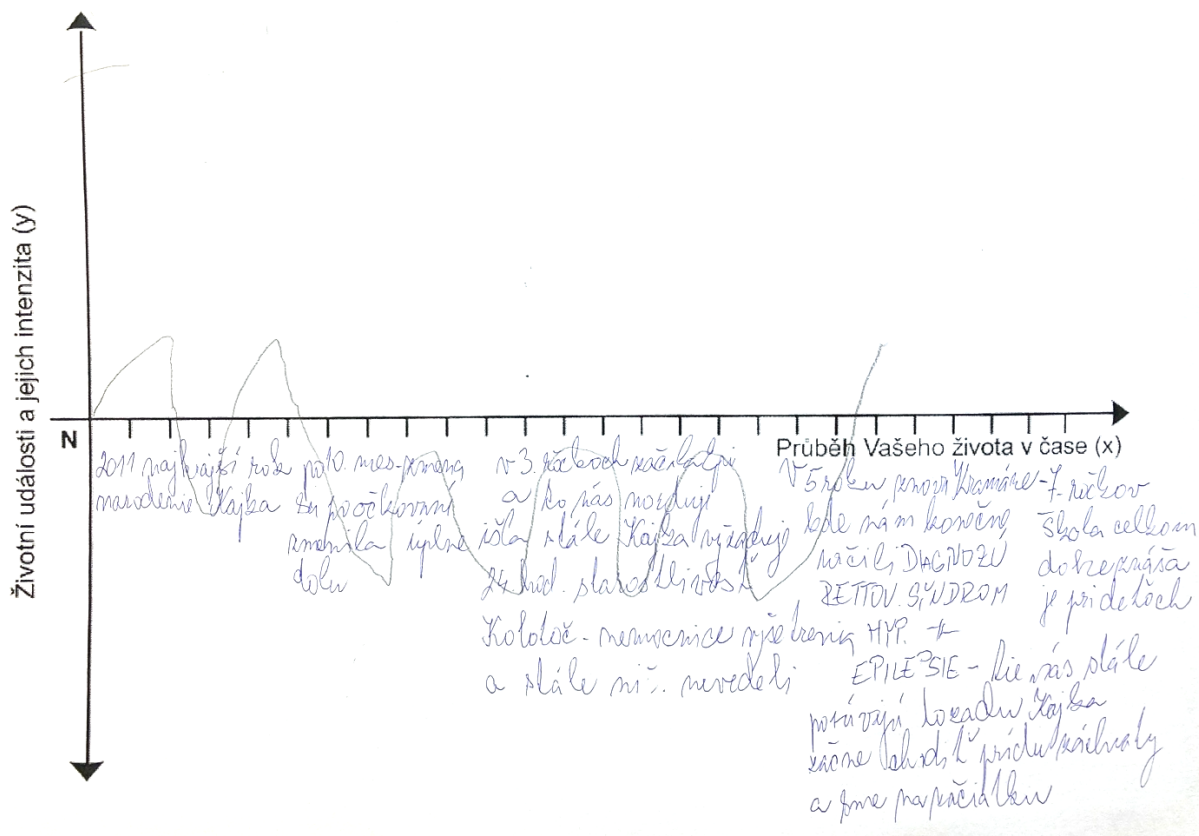 Životní události a jejich intenzita (y)
N
Průběh Vašeho života v čase (x)
2011 najkrajší rok
narodenie Kajka
po 10. mes. zmena
sa po očkovaní
zmenila úplne
dolu
v 3. rôčkoch začila
a to nás
išla stále Kajka vyžaduje
24 hod. starostlivosť
Kolotoč - nemocnice vyšetrenia
a stále nič. nevedeli
V 5 roku znova Kramáre
kde nám konečne
určili DIAGNOZU
RETTOV. SINDROM
HYP. +
EPILEPSIE - tie nás stále
Kajka
začne chodiť prídu záchvaty
a sme na začiatku
7. ričkov
škola celkom
dobre znáša
je pri deťoch